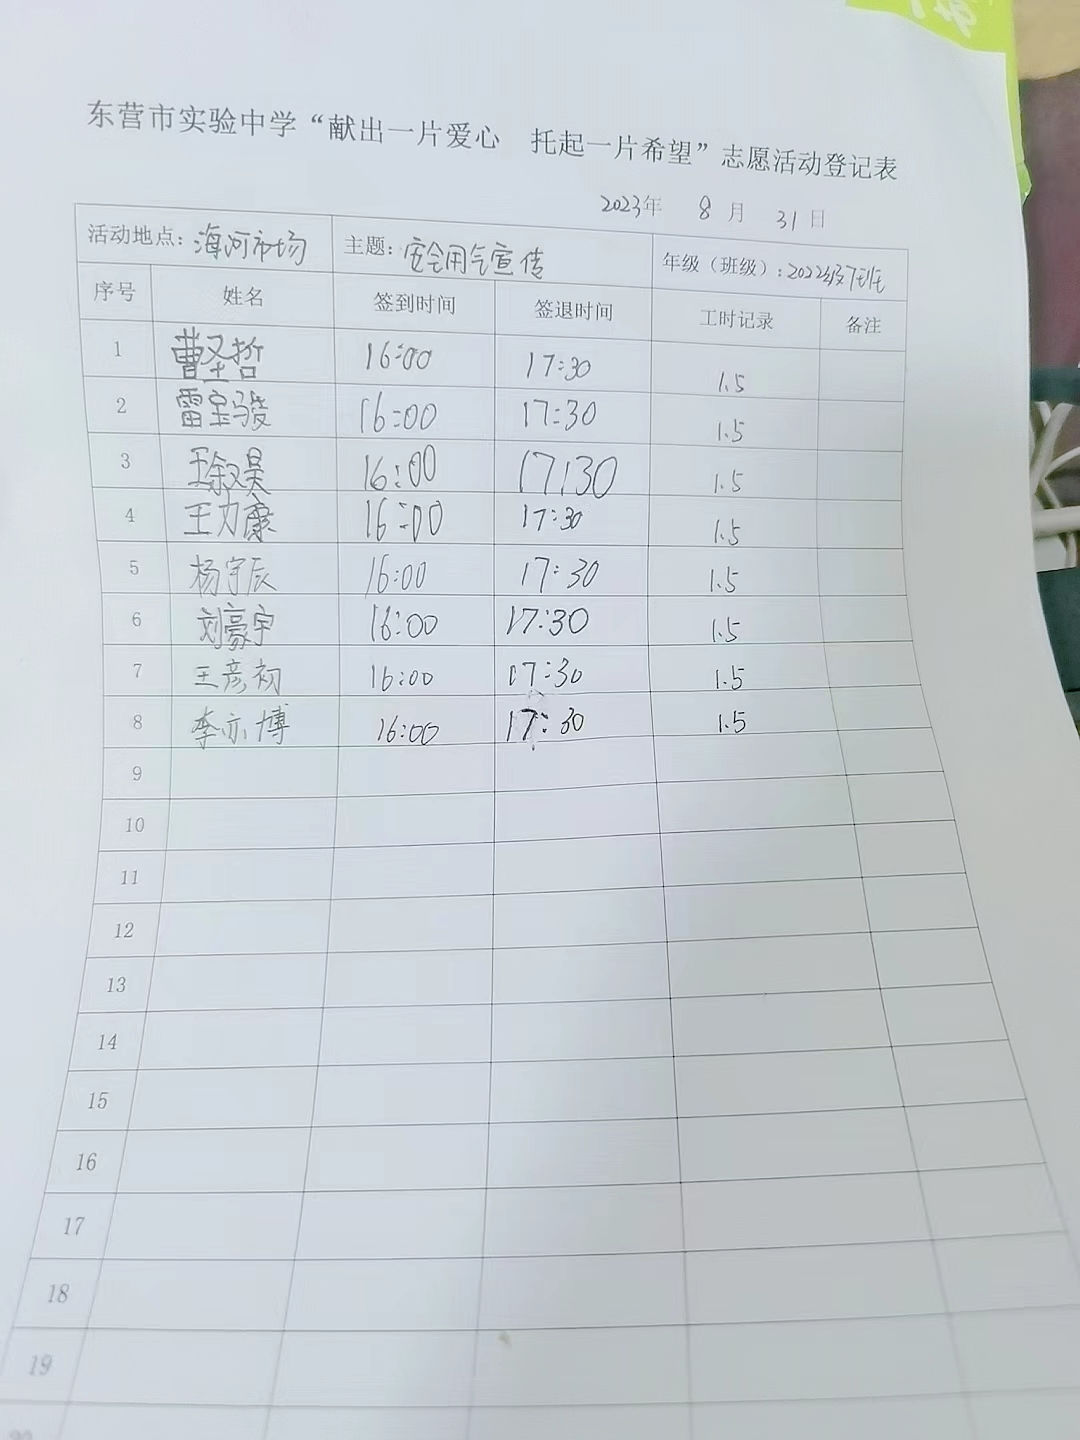 东营市实验中学“献出一片爱心 托起一片希望”志愿活动登记表
2023年 8月 31日
活动地点：海河市场 主题：安全用气宣传 年级（班级）：2022级7班
序号 姓名 签到时间 签退时间 工时记录 备注
1 曹圣哲 16:00 17:30 1.5
2 雷宝骏 16:00 17:30 1.5
3 王叙昊 16:00 17:30 1.5
4 王力康 16:00 17:30 1.5
5 杨宇辰 16:00 17:30 1.5
6 刘豪宇 16:00 17:30 1.5
7 王彦初 16:00 17:30 1.5
8 李亦博 16:00 17:30 1.5
9
10
11
12
13
14
15
16
17
18
19